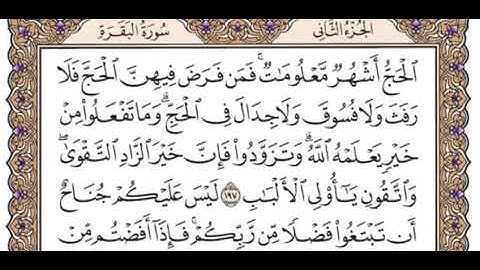 الجزء الثاني سورة البقرة
ٱلۡحَجُّ أَشۡهُرٞ مَّعۡلُومَٰتٞۚ فَمَن فَرَضَ فِيهِنَّ ٱلۡحَجَّ فَلَا
رَفَثَ وَلَا فُسُوقَ وَلَا جِدَالَ فِي ٱلۡحَجِّۗ وَمَا تَفۡعَلُواْ مِنۡ
خَيۡرٖ يَعۡلَمۡهُ ٱللَّهُۗ وَتَزَوَّدُواْ فَإِنَّ خَيۡرَ ٱلزَّادِ ٱلتَّقۡوَىٰۖ
وَٱتَّقُونِ يَٰٓأُوْلِي ٱلۡأَلۡبَٰبِ ١٩٧ لَيۡسَ عَلَيۡكُمۡ جُنَاحٌ
أَن تَبۡتَغُواْ فَضۡلٗا مِّن رَّبِّكُمۡۚ فَإِذَآ أَفَضۡتُم مِّنۡ